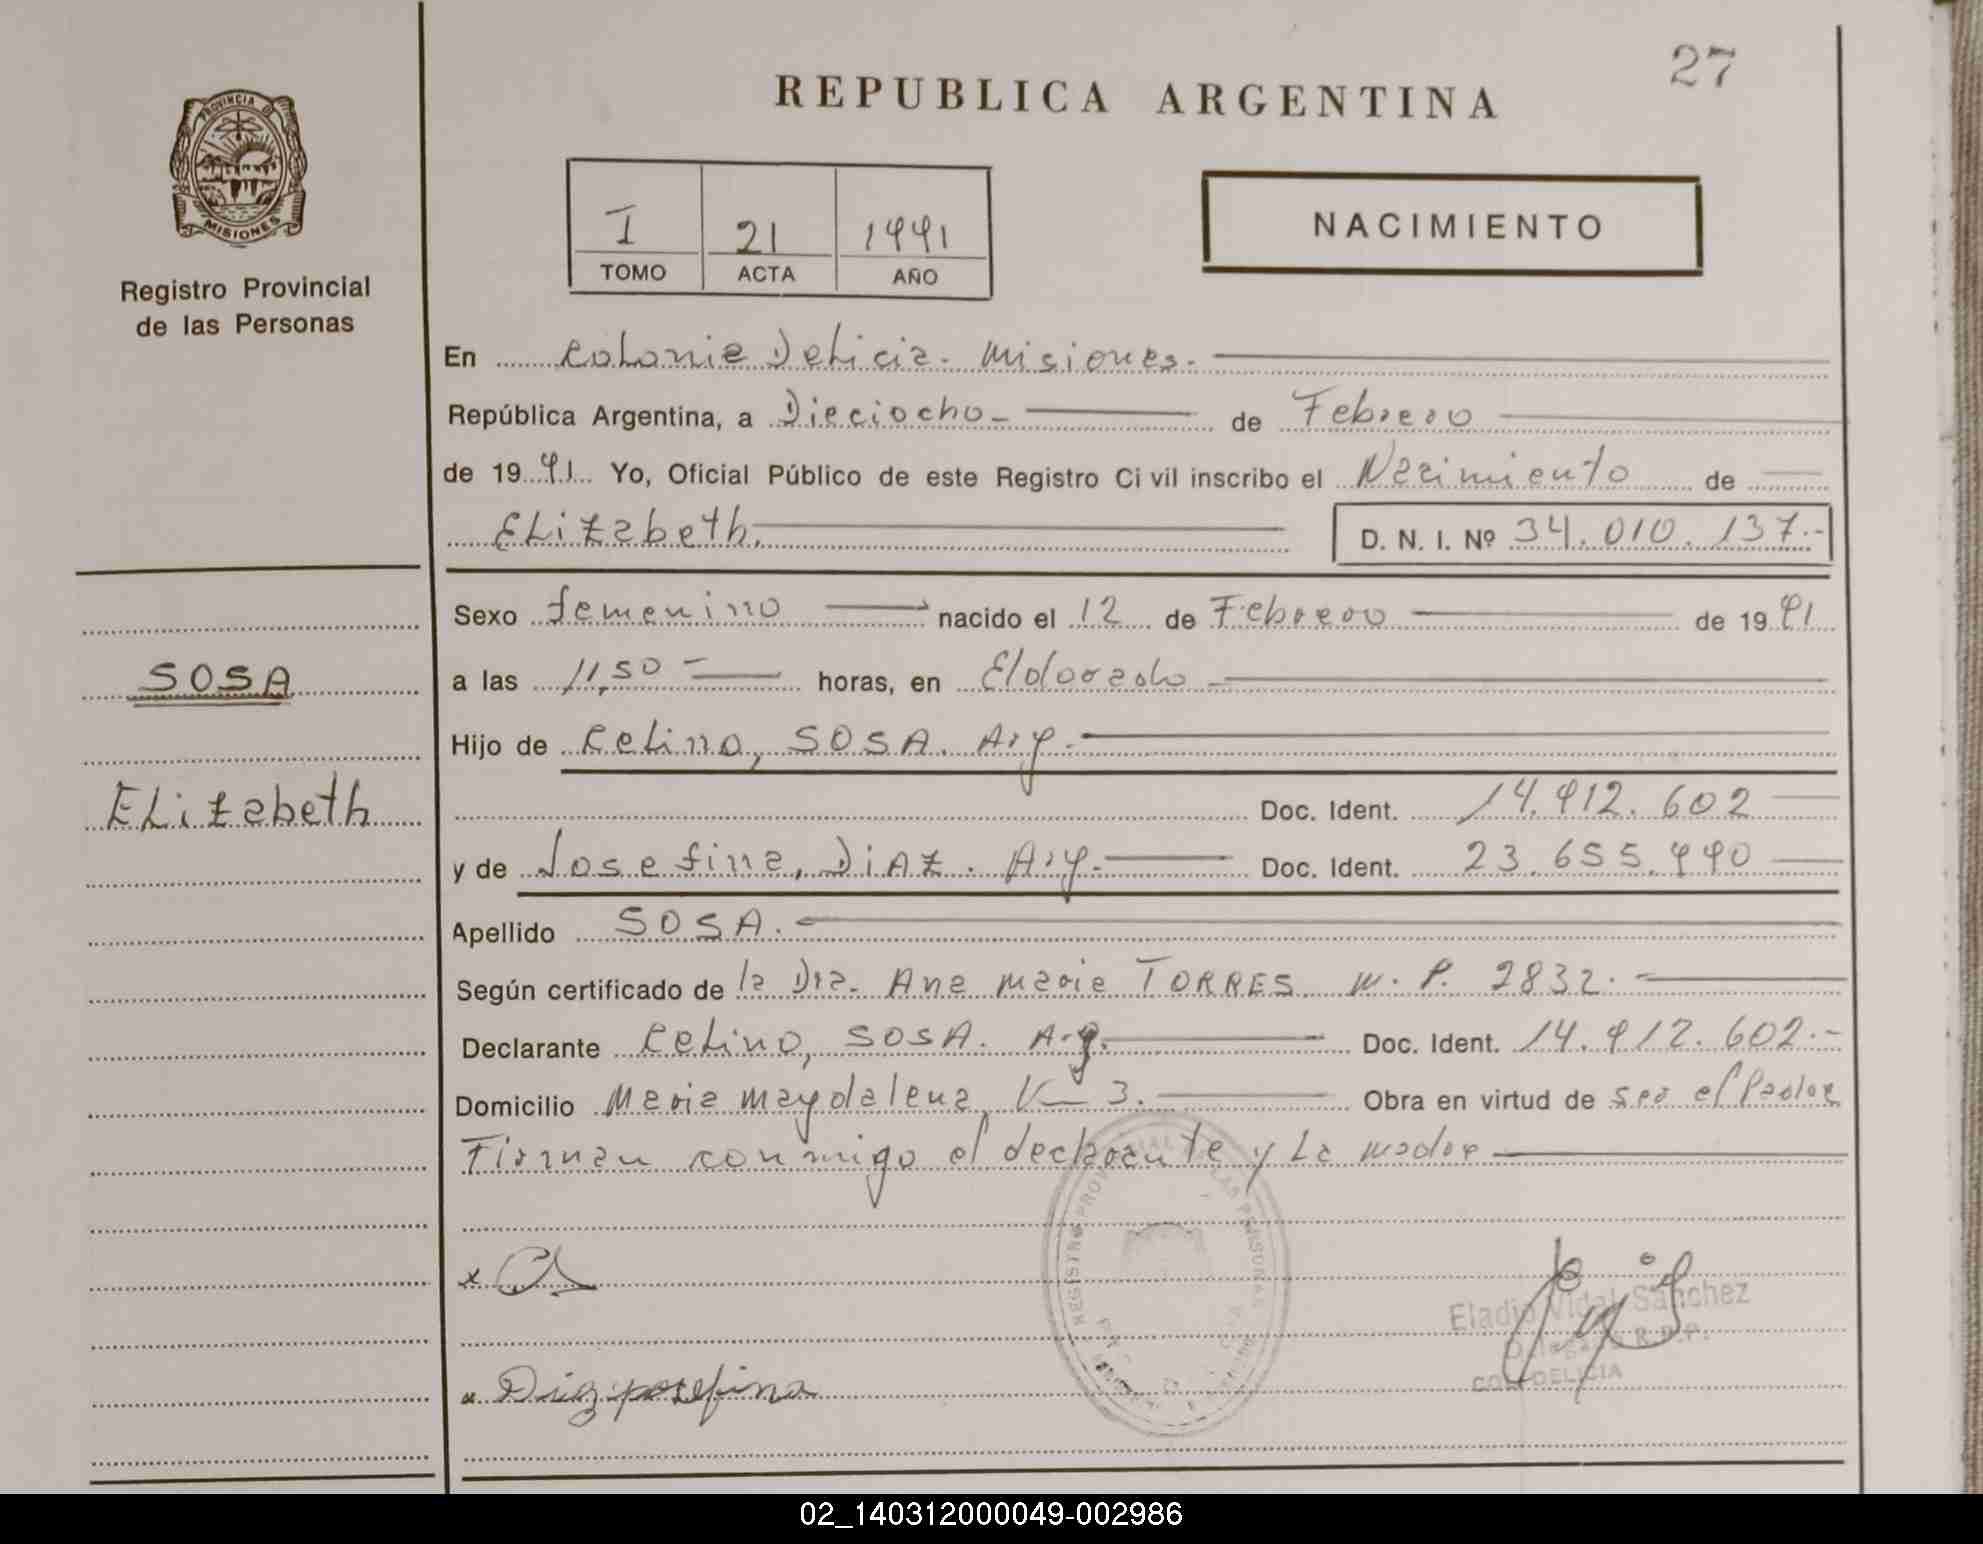 27
REPUBLICA ARGENTINA
PROVINCIA DE
MISIONES
Registro Provincial
de las Personas
I 21 1991
TOMO ACTA AÑO
NACIMIENTO
En Colonia Delicia. Misiones.
República Argentina, a Dieciocho de Febrero
de 1991 Yo, Oficial Público de este Registro Civil inscribo el Nacimiento de
Elizabeth. D. N. I. Nº 34.010.137.-
Sexo femenino nacido el 12 de Febrero de 1991
SOSA
a las 11,50 horas, en Eldorado
Hijo de Celino, SOSA. Arg.
Elizabeth
Doc. Ident. 14.912.602
y de Josefina, DIAZ. Arg. Doc. Ident. 23.655.990
Apellido SOSA.
Según certificado de la Dra. Ana Maria TORRES M.P. 2832.
Declarante Celino, SOSA. Arg. Doc. Ident. 14.912.602.-
Domicilio Maria Magdalena, K 3. Obra en virtud de ser el Padre
Firman conmigo el declarante y La madre
REGISTRO PROVINCIAL DE LAS PERSONAS
x
Eladio Vidal Sanchez
Delegado R.P.P.
COL. DELICIA
x Diaz josefina
02_140312000049-002986